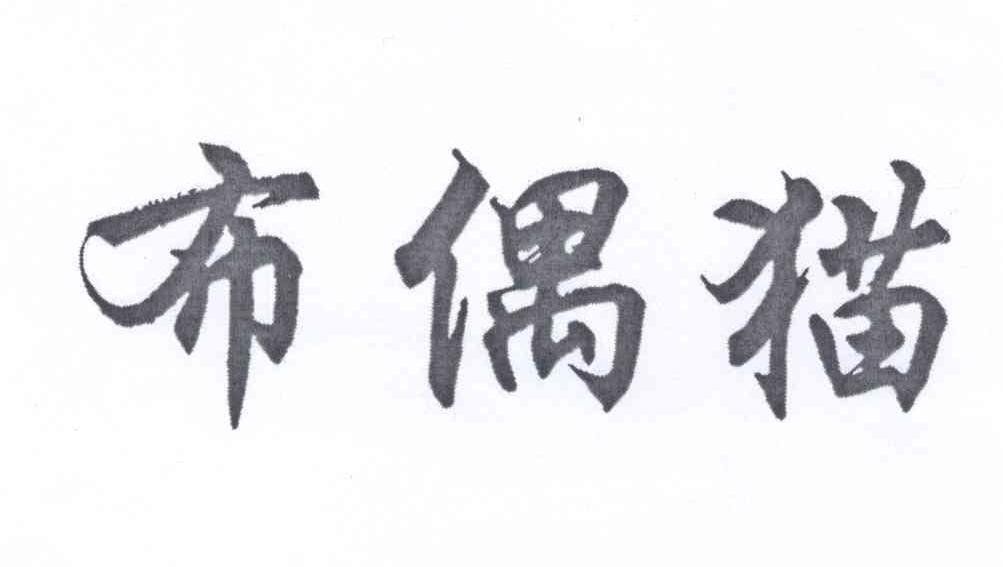 布偶猫